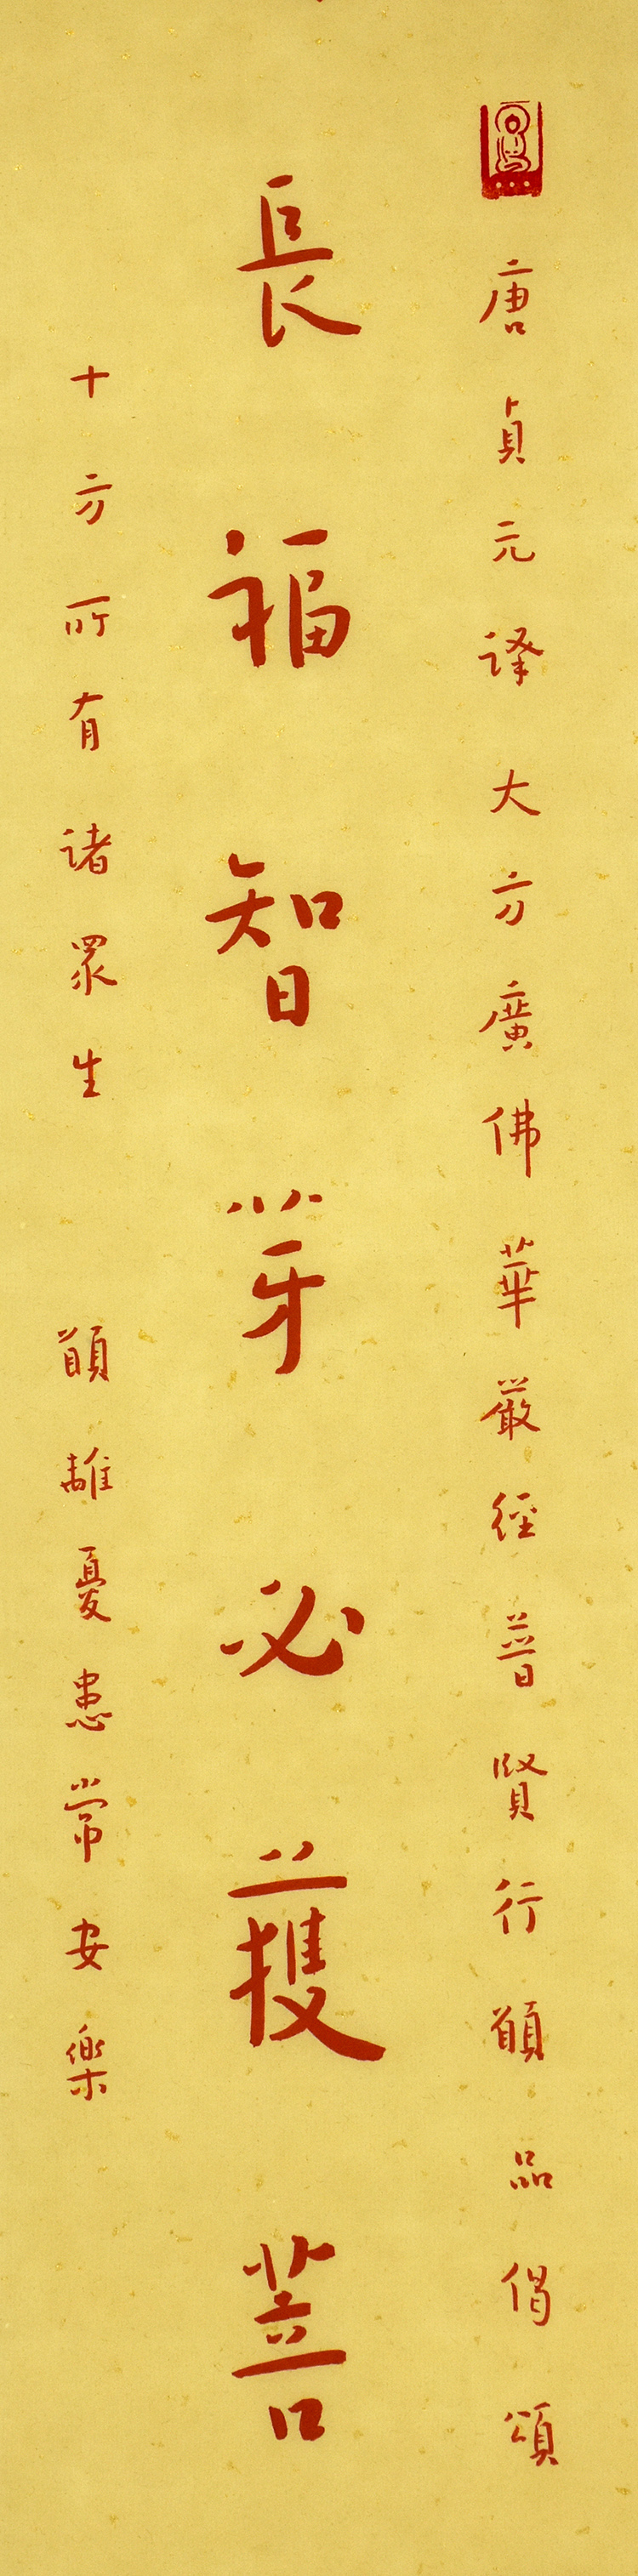 唐貞元譯大方廣佛華嚴經普賢行願品偈頌
長福智芽必獲菩
十方所有諸眾生 願離憂患常安樂